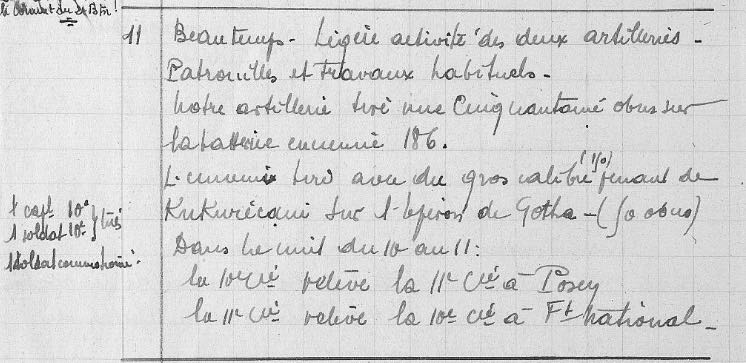 le Comdt du 2e Btn!
11 Beau temps - Légère activité des deux artilleries -
Patrouilles et travaux habituels -
Notre artillerie tire une Cinquantaine obus sur
la batterie ennemie 186.
L'ennemi tire avec du gros calibre (150) venant de
sur l'éperon de Gotha - (50 obus)
Dans la nuit du 10 au 11 :
la 10e Cie relève la 11e Cie à Posen
la 11e Cie relève la 10e Cie à Ft National -
1 capl 10e
1 soldat 10e } tués
1 soldat commotionné.